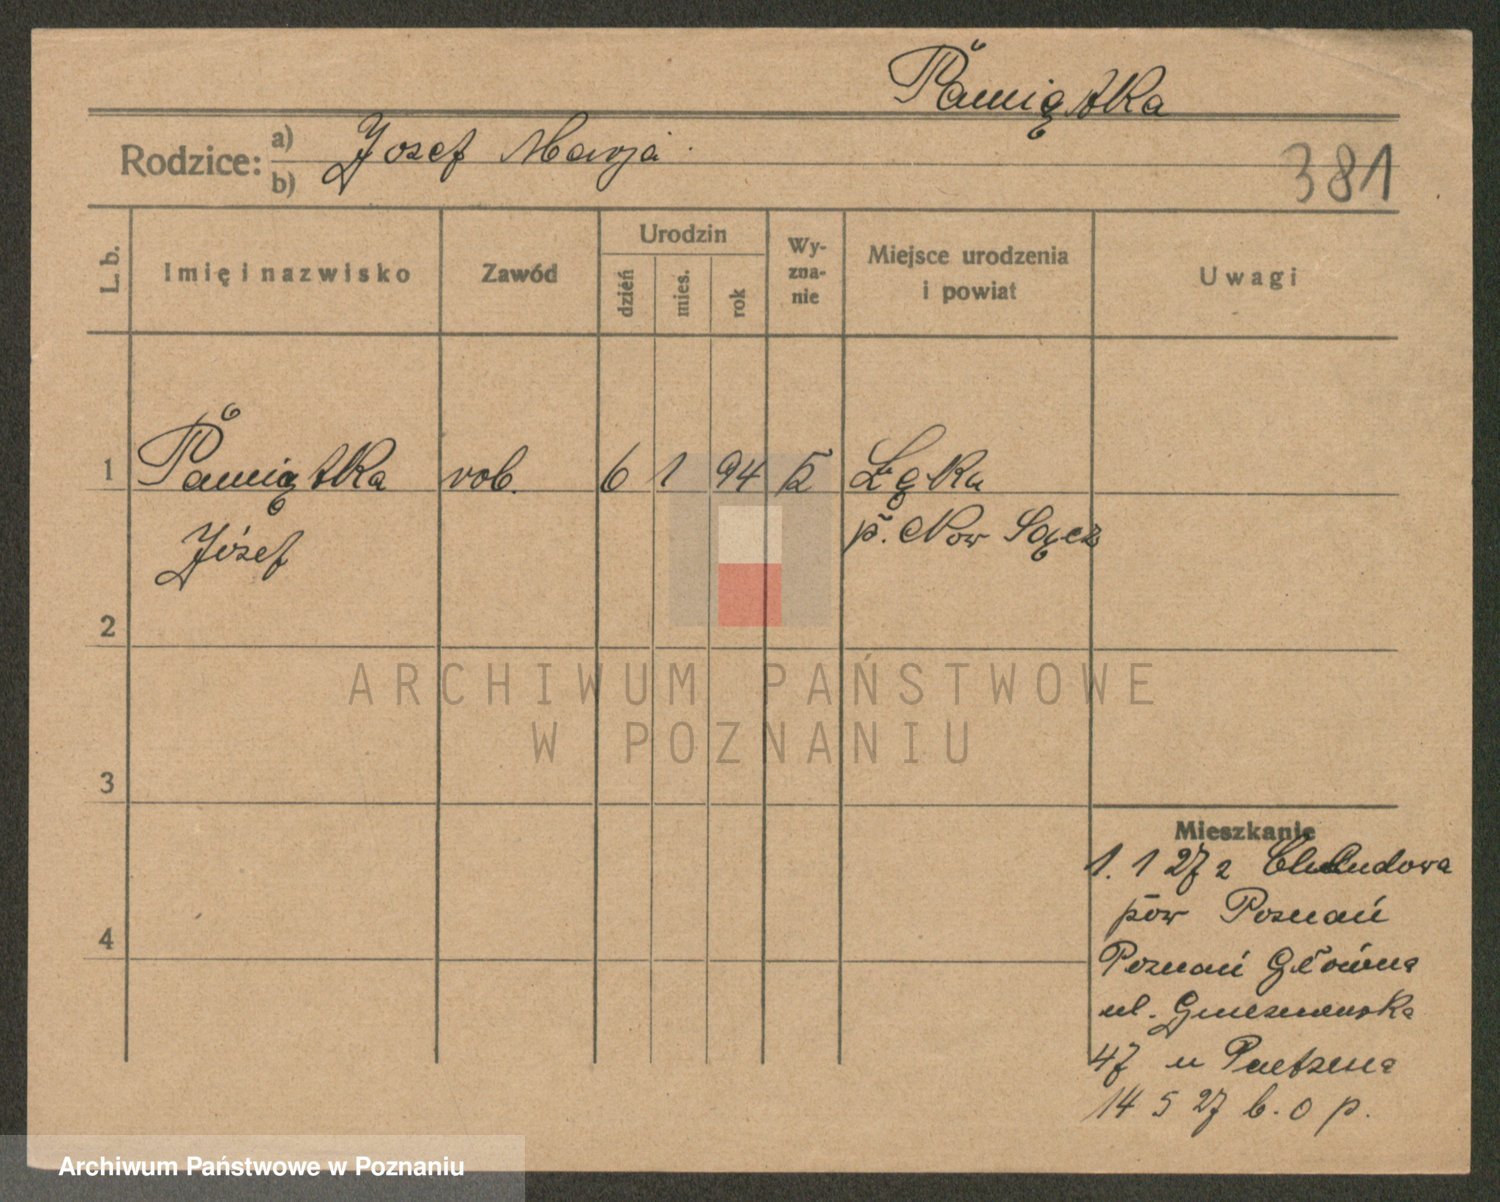 Pamiątka
Rodzice: a) Józef Marja
b)
381
L. b.
Imię i nazwisko
Zawód
Urodzin
dzień
mies.
rok
Wy-
zna-
nie
Miejsce urodzenia
i powiat
Uwagi
1 Pamiątka rob. 6 1 94 Łąka
Józef p. Now Sącz
2
3
4
Mieszkanie
1. 1 27 z Chludowa
pow Poznań
Poznań Główna
ul. Gnieznienska
47 u
14 5 27 b. o p.
ARCHIWUM PAŃSTWOWE
W POZNANIU
Archiwum Państwowe w Poznaniu